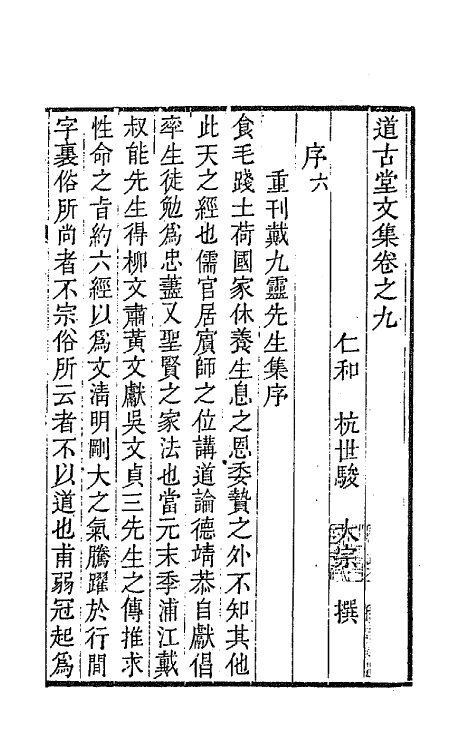 道古堂文集卷之九
仁和 杭世駿 大宗 撰
序六
重刊戴九靈先生集序
食毛踐土荷國家休養生息之恩委贄之外不知其他
此天之經也儒官居賓師之位講道論德靖恭自獻倡
率生徒勉爲忠藎又聖賢之家法也當元末季浦江戴
叔能先生得柳文肅黃文獻吳文貞三先生之傳推求
性命之旨約六經以爲文淸明剛大之氣騰躍於行間
字裏俗所尚者不宗俗所云者不以道也甫弱冠起爲